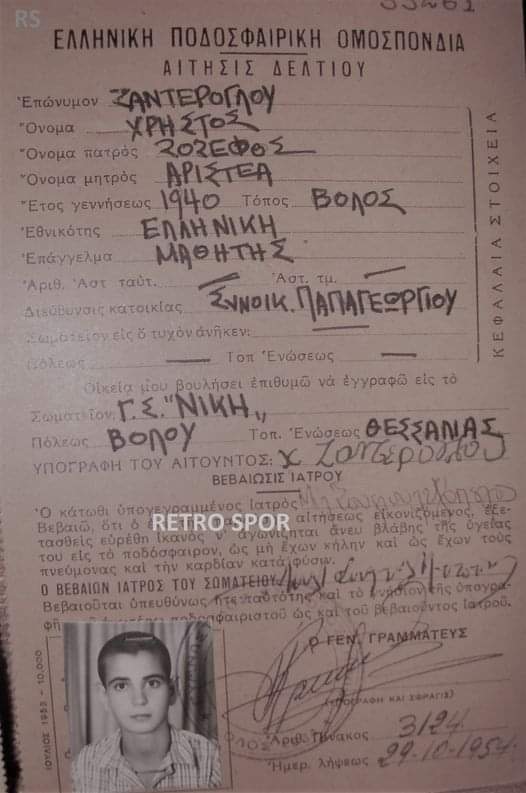 RS
33261
ΕΛΛΗΝΙΚΗ ΠΟΔΟΣΦΑΙΡΙΚΗ ΟΜΟΣΠΟΝΔΙΑ
ΑΙΤΗΣΙΣ ΔΕΛΤΙΟΥ
Ἐπώνυμον ΖΑΝΤΕΡΟΓΛΟΥ
Ὄνομα ΧΡΗΣΤΟΣ
Ὄνομα πατρός ΖΟΖΕΦΟΣ
Ὄνομα μητρός ΑΡΙΣΤΕΑ
Ἔτος γεννήσεως 1940 Τόπος ΒΟΛΟΣ
Ἐθνικότης ΕΛΛΗΝΙΚΗ
Ἐπάγγελμα ΜΑΘΗΤΗΣ
Ἀριθ. Ἀστ ταὐτ. — Ἀστ. τμ. —
Διεύθυνσις κατοικίας ΣΥΝΟΙΚ. ΠΑΠΑΓΕΩΡΓΙΟΥ
Σωματεῖον εἰς ὅ τυχόν ἀνῆκεν: —
Πόλεως — Τοπ Ἑνώσεως —
ΚΕΦΑΛΑΙΑ ΣΤΟΙΧΕΙΑ
Οἰκείᾳ μου βουλήσει ἐπιθυμῶ νά ἐγγραφῶ εἰς τό
Σωματεῖον: Γ.Σ. "ΝΙΚΗ„
Πόλεως ΒΟΛΟΥ Τοπ. Ἑνώσεως ΘΕΣΣΑΛΙΑΣ
ΥΠΟΓΡΑΦΗ ΤΟΥ ΑΙΤΟΥΝΤΟΣ: Χ Ζαντερόγλου
ΒΕΒΑΙΩΣΙΣ ΙΑΤΡΟΥ
Ὁ κάτωθι ὑπογεγραμμένος ἰατρός
Βεβαιῶ, ὅτι ὁ αἰτήσεως εἰκονιζόμενος, ἐξε-
RETRO SPOR
τασθείς εὑρέθη ἱκανός ν' ἀγωνίζηται ἄνευ βλάβης τῆς ὑγείας
του εἰς τό ποδόσφαιρον, ὡς μή ἔχων κήλην καί ὡς ἔχων τούς
πνεύμονας καί τήν καρδίαν κατά φύσιν.
Ο ΒΕΒΑΙΩΝ ΙΑΤΡΟΣ ΤΟΥ ΣΩΜΑΤΕΙΟΥ
Βεβαιοῦται ὑπευθύνως ἥ τε ταυτότης καί τό γνήσιον τῆς ὑπογρα-
φῆς ποδοσφαιριστοῦ ὡς καί τοῦ βεβαιοῦντος ἰατροῦ.
Ο ΓΕΝ. ΓΡΑΜΜΑΤΕΥΣ
(ΥΠΟΓΡΑΦΗ ΚΑΙ ΣΦΡΑΓΙΣ)
Ἀριθ. Πίνακος 3124
Ἡμερ. λήψεως 29-10-1954
ΙΟΥΛΙΟΣ 1953 - 10.000